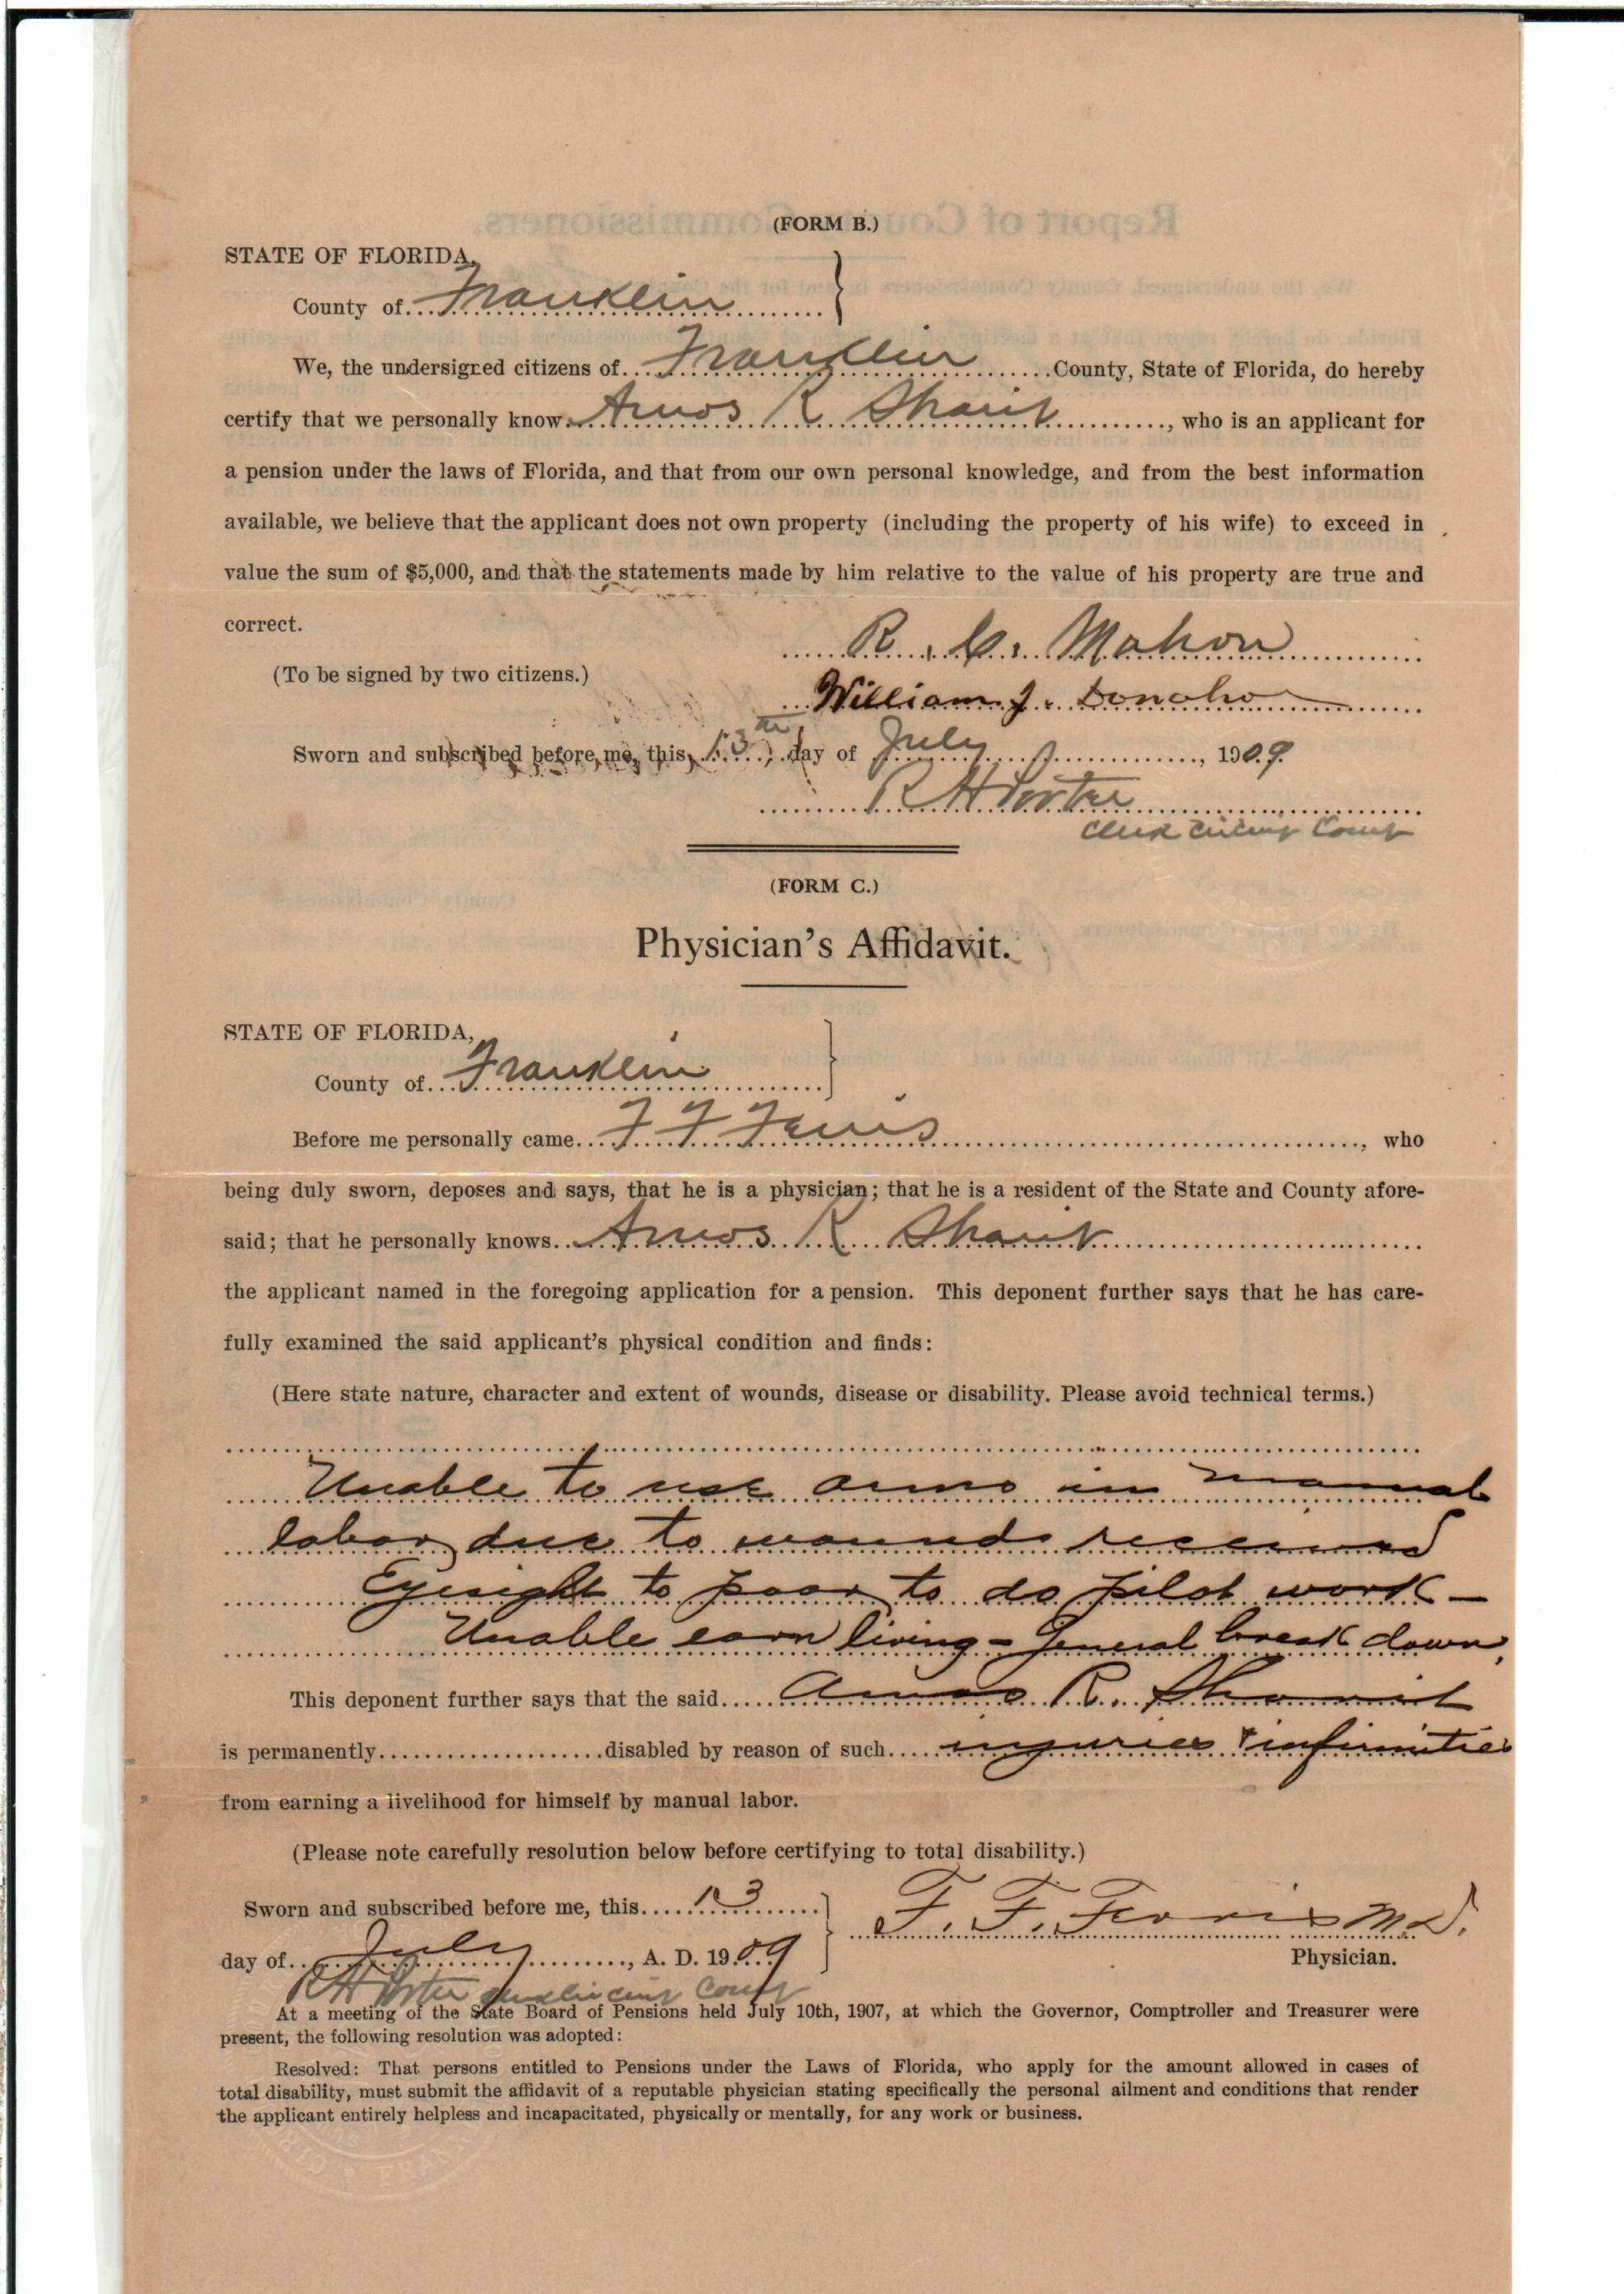 (FORM B.)
STATE OF FLORIDA,
County of Franklin
We, the undersigned citizens of Franklin County, State of Florida, do hereby
certify that we personally know Amos R Sharit, who is an applicant for
a pension under the laws of Florida, and that from our own personal knowledge, and from the best information
available, we believe that the applicant does not own property (including the property of his wife) to exceed in
value the sum of $5,000, and that the statements made by him relative to the value of his property are true and
correct.
R. C. Mahon
(To be signed by two citizens.)
William J. Donoho
Sworn and subscribed before me, this 13th day of July, 1909.
R H Porter
Clerk Circuit Court
(FORM C.)
Physician's Affidavit.
STATE OF FLORIDA,
County of Franklin
Before me personally came F F Ferris, who
being duly sworn, deposes and says, that he is a physician; that he is a resident of the State and County afore-
said; that he personally knows Amos R Sharit
the applicant named in the foregoing application for a pension. This deponent further says that he has care-
fully examined the said applicant's physical condition and finds:
(Here state nature, character and extent of wounds, disease or disability. Please avoid technical terms.)
Unable to use arms in manual
labor due to wounds received
Eyesight to poor to do pilot work —
Unable earn living - General break down.
This deponent further says that the said Amos R. Sharit
is permanently disabled by reason of such injuries & infirmities
from earning a livelihood for himself by manual labor.
(Please note carefully resolution below before certifying to total disability.)
Sworn and subscribed before me, this 13
F. F. Ferris M D.
day of July, A. D. 1909
Physician.
R H Porter Clerk Circuit Court
At a meeting of the State Board of Pensions held July 10th, 1907, at which the Governor, Comptroller and Treasurer were
present, the following resolution was adopted:
Resolved: That persons entitled to Pensions under the Laws of Florida, who apply for the amount allowed in cases of
total disability, must submit the affidavit of a reputable physician stating specifically the personal ailment and conditions that render
the applicant entirely helpless and incapacitated, physically or mentally, for any work or business.